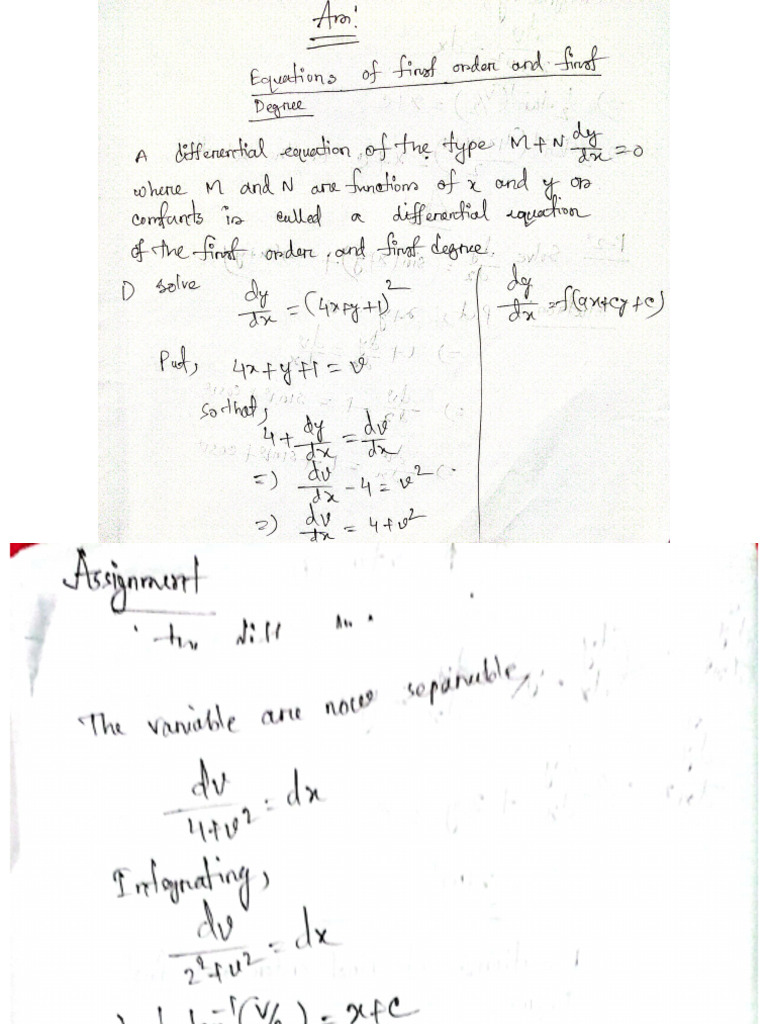 Ans:
Equations of first order and first
Degree
A differential equation of the type M+N dy/dx = 0
where M and N are functions of x and y or
constants is called a differential equation
of the first order and first degree.
1) Solve dy/dx = (4x+y+1)^2
dy/dx = f(ax+cy+c)
Put, 4x+y+1 = v
so that,
4 + dy/dx = dv/dx
=) dv/dx - 4 = v^2
=) dv/dx = 4+v^2
Assignment
diff
The variable are now separable,
dv/(4+v^2) = dx
Integrating,
dv/(2^2+v^2) = dx
= x+c